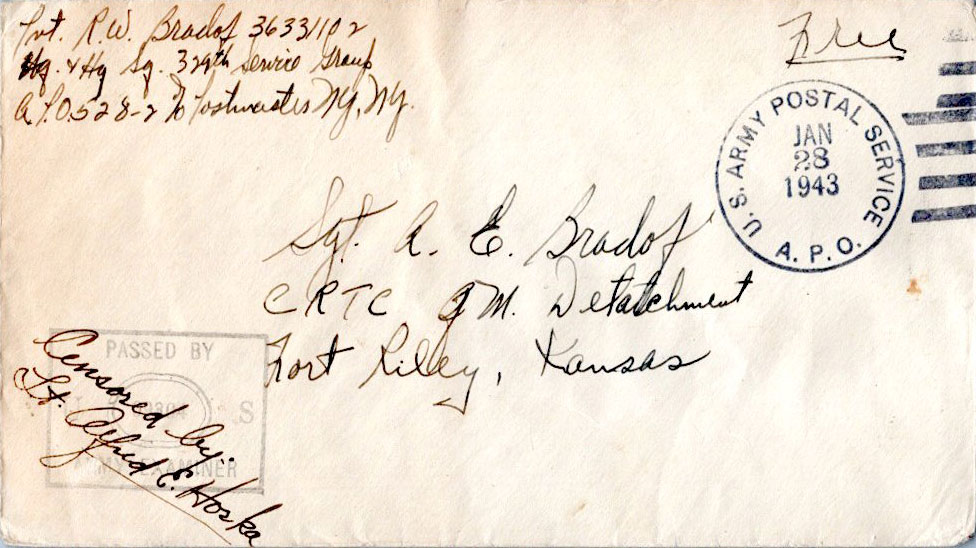 Pvt. R.W. Bradof 36331102
Hq. & Hq Sq. 329th Service Group
A.P.O. 528-2 % Postmaster NY, NY.
Free
U.S. ARMY POSTAL SERVICE
JAN
28
1943
A.P.O.
Sgt. A. E. Bradof
CRTC Q M. Detatchment
Fort Riley, Kansas
PASSED BY
S
ARMY EXAMINER
Censored by:
Lt. Alfred E. Hoska